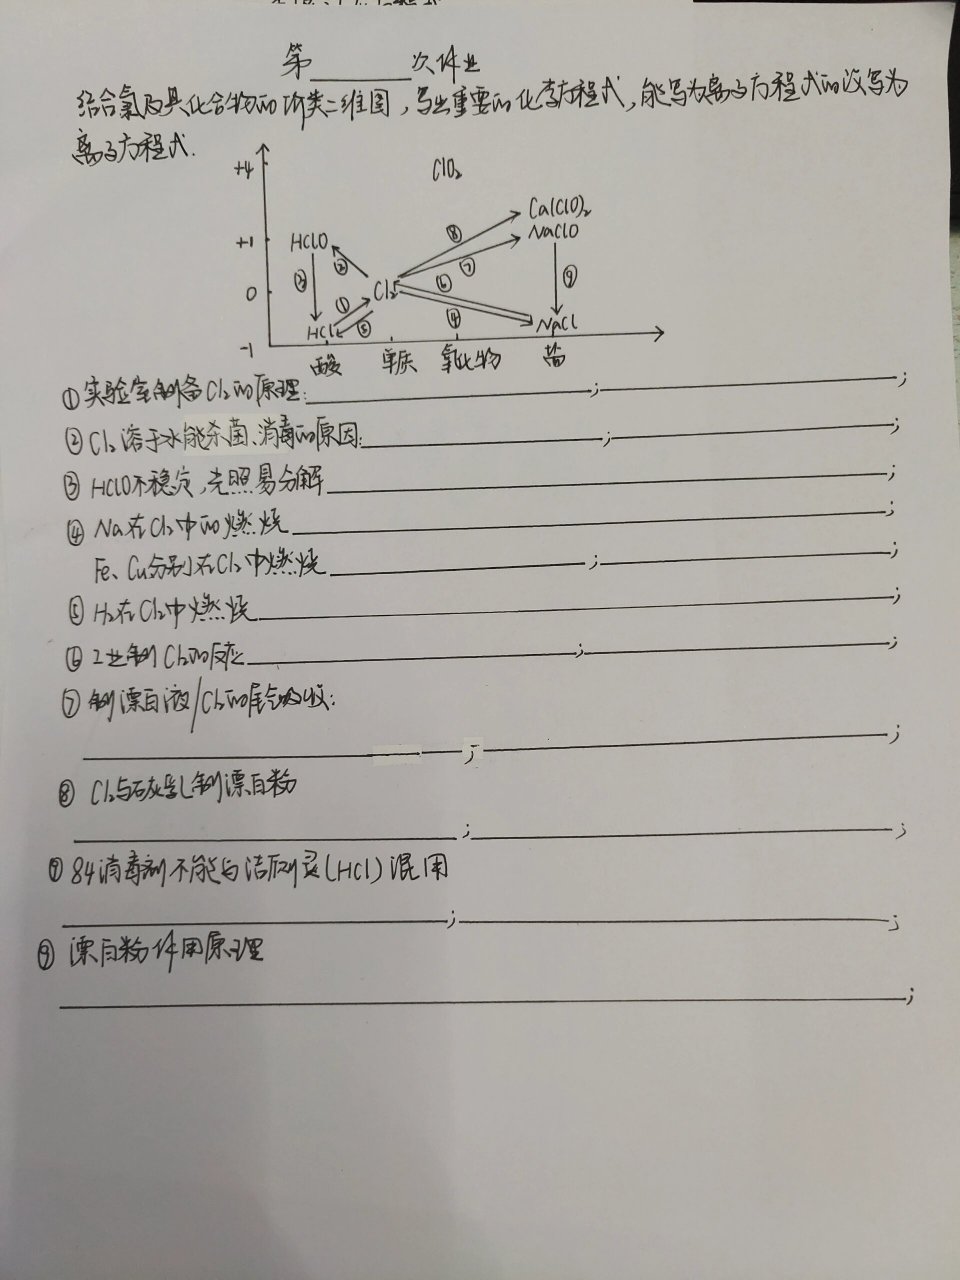 第______次作业
结合氯及其化合物的价类二维图，写出重要的化学方程式，能写为离子方程式的改写为
离子方程式.
+4
ClO₂
Ca(ClO)₂
⑧
+1
HClO
NaClO
②
⑦
③
⑨
0
Cl₂
⑥
①
HCl
⑤
④
NaCl
-1
酸
单质
氧化物
盐
①实验室制备Cl₂的原理:______;______;
②Cl₂溶于水能杀菌、消毒的原因:______;______;
③HClO不稳定,光照易分解______;
④Na在Cl₂中的燃烧______;
Fe、Cu分别在Cl₂中燃烧______;______;
⑤H₂在Cl₂中燃烧______;
⑥工业制Cl₂的反应______;______;
⑦制漂白液/Cl₂的尾气吸收:
______;______;
⑧Cl₂与石灰乳制漂白粉
______;______;
⑨84消毒剂不能与洁厕灵(HCl)混用
______;______;
⑨漂白粉作用原理
______;